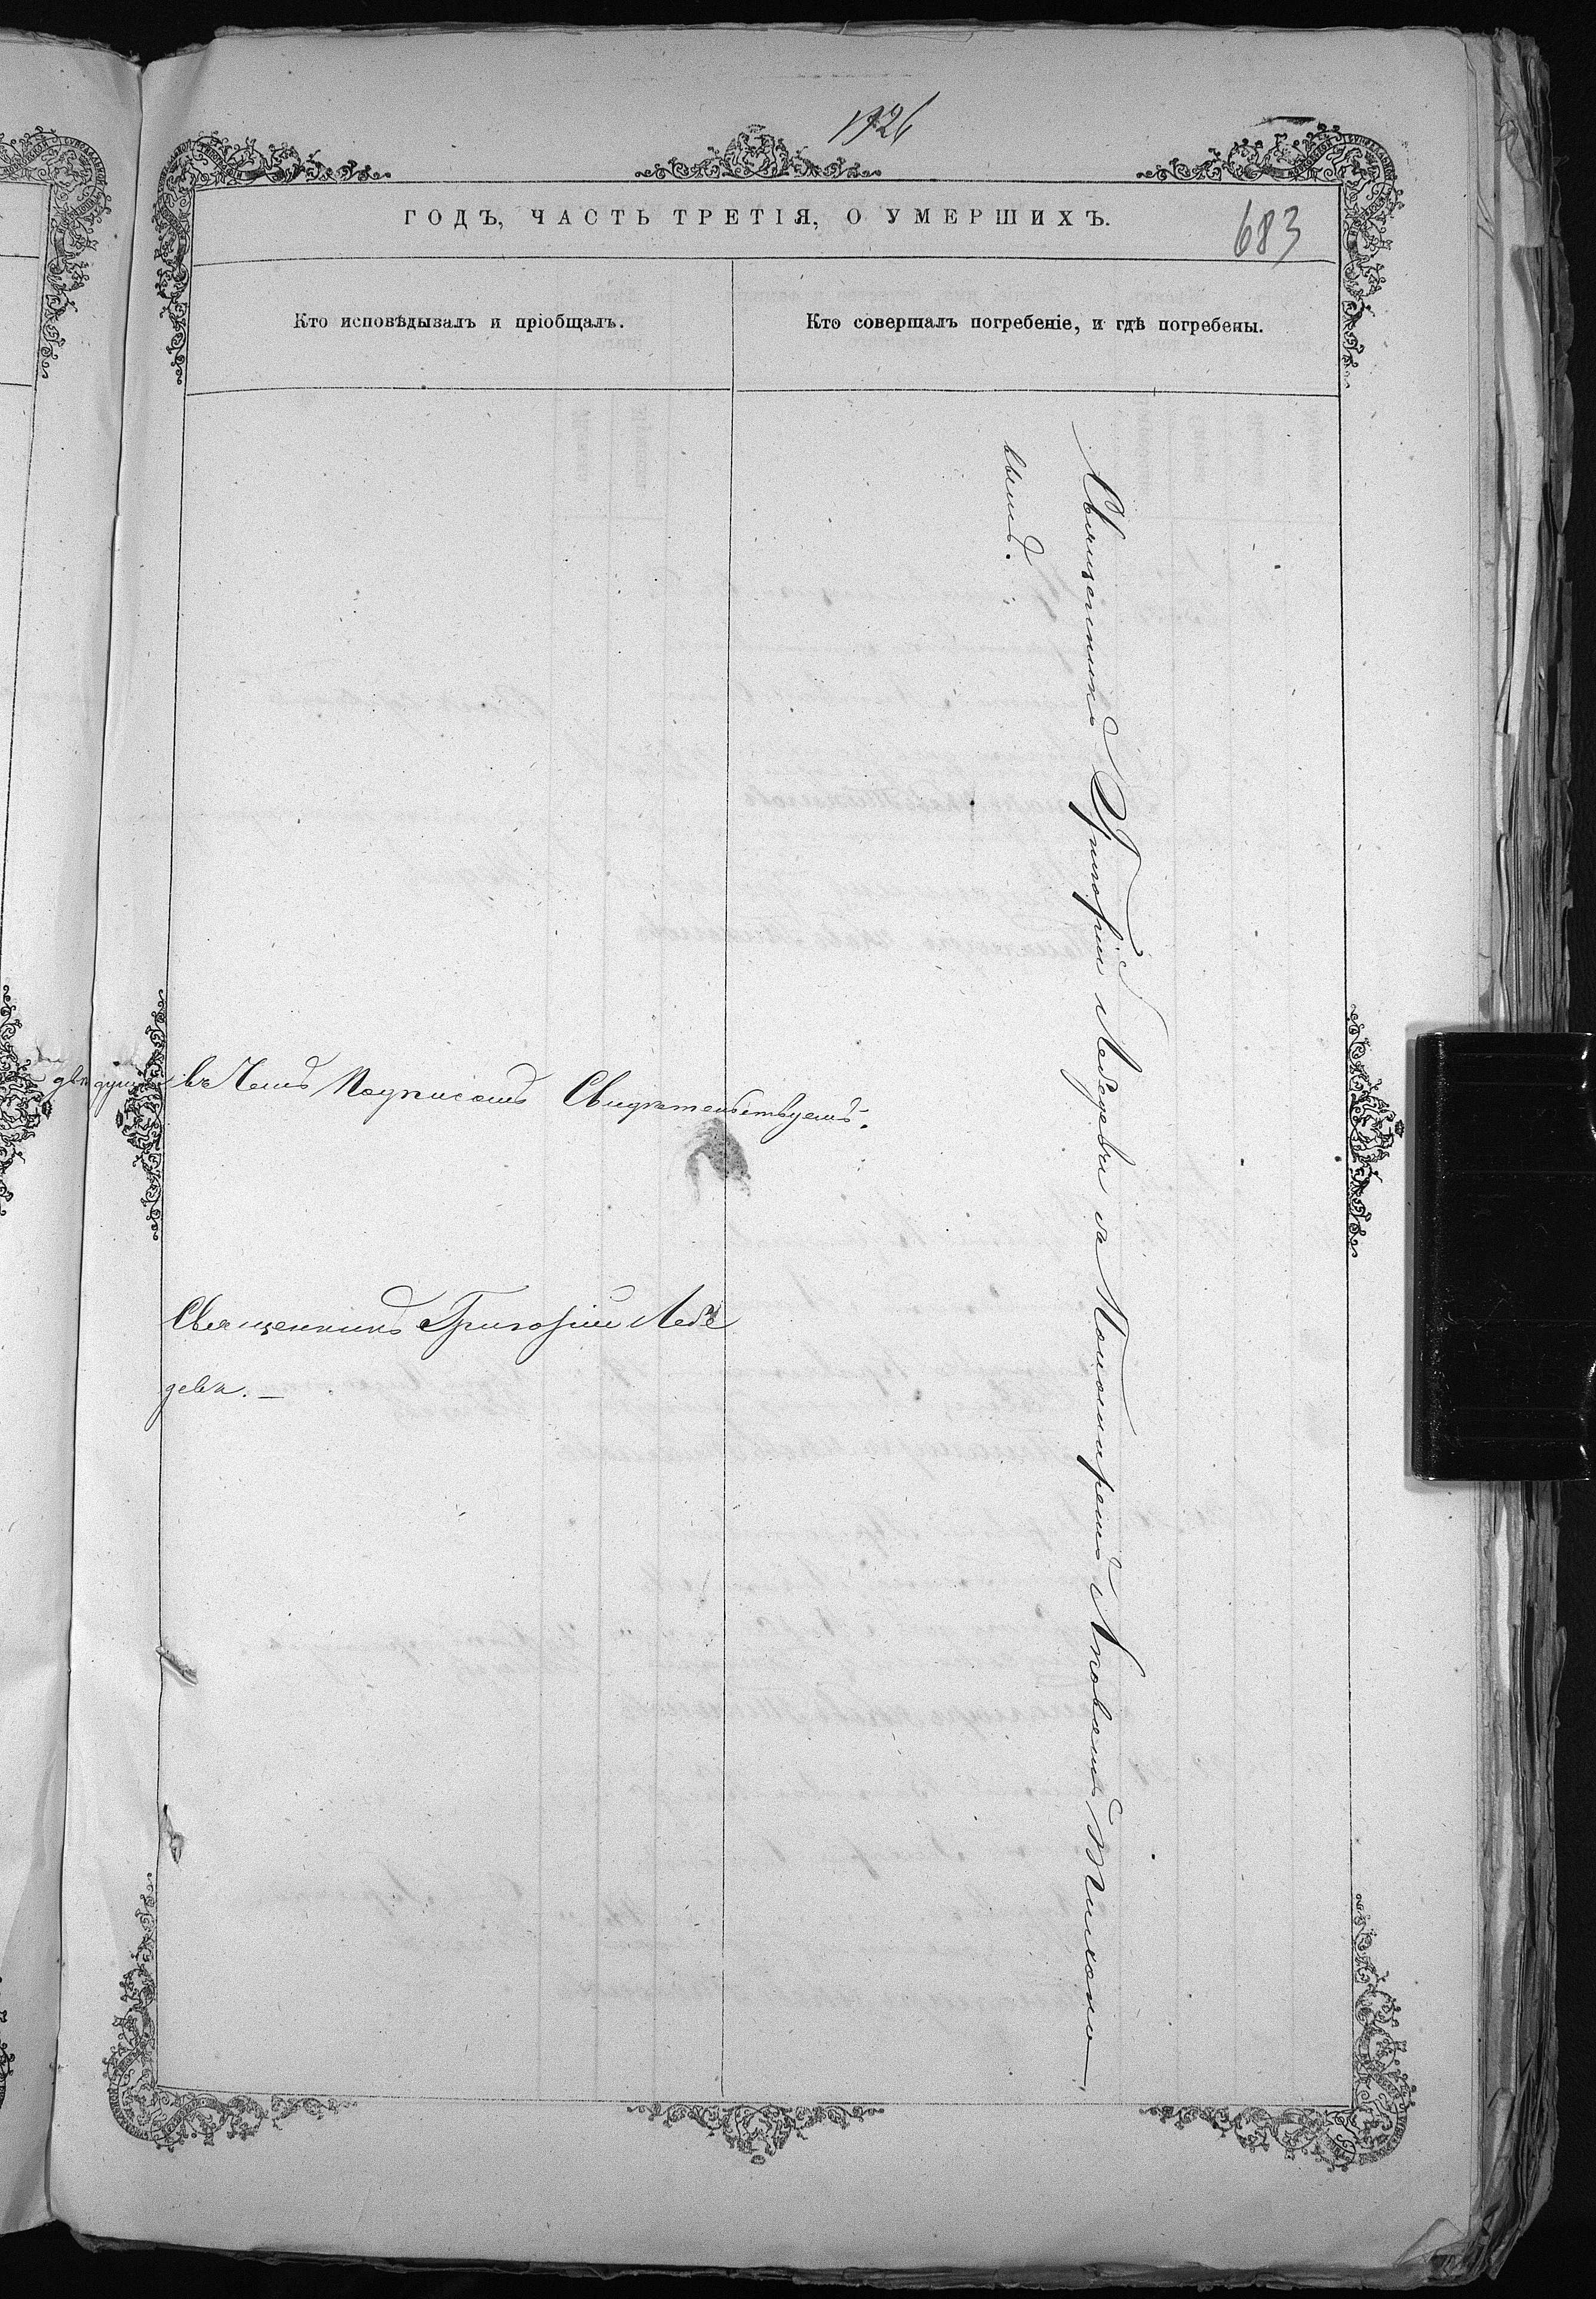 1926
ГОДЪ, ЧАСТЬ ТРЕТІЯ, О УМЕРШИХЪ.
683
Кто исповѣдывалъ и пріобщалъ.
Кто совершалъ погребеніе, и гдѣ погребены.
двѣ душ въ чемъ Подписомъ Свидѣтельствуемъ.
Священникъ Григорій Лебе
дева. —
Священникъ Григорій Лебедева съ Пономаремъ Яковомъ Тихоно
вымъ.